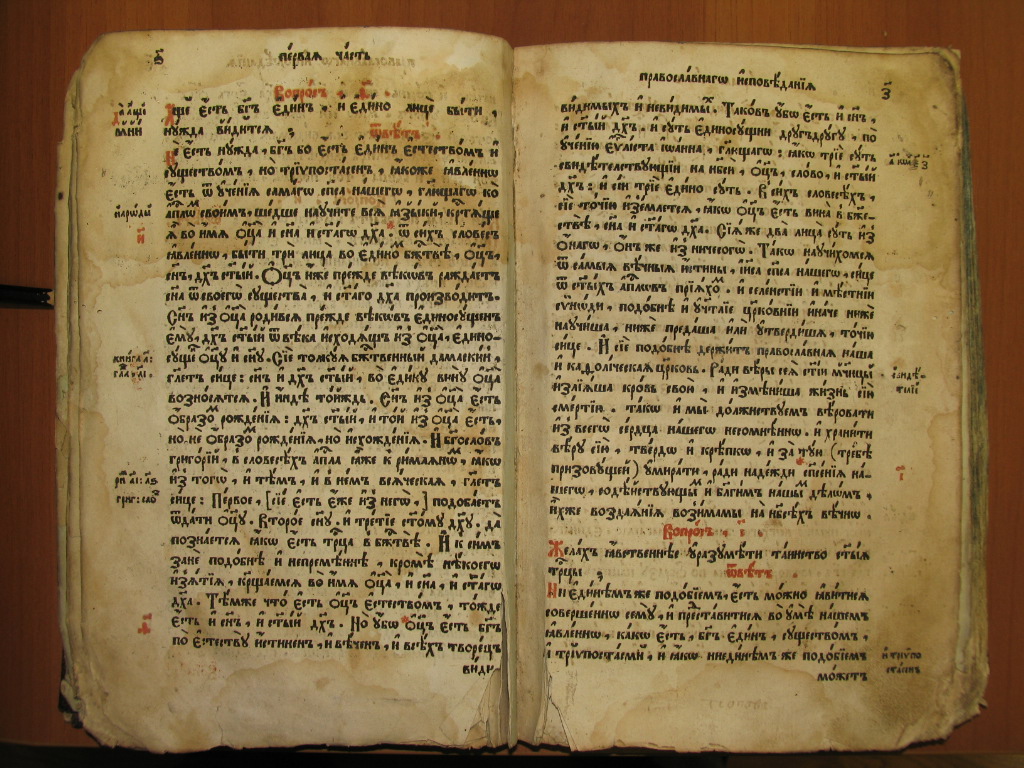 ѕ҃
пе́рваѧ ча́сть
Вопро́съ . ѳ҃ .
А́ще є҆́сть бг҃ъ є҆ди́нъ , и҆ є҆ди́но лицѐ бы́ти ,
ну́жда ви́дитсѧ ;
ѿвѣ́тъ .
Не є҆́сть ну́жда , бг҃ъ бо є҆́сть є҆ди́нъ є҆стество́мъ и҆
существо́мъ , но трїѵпоста́сенъ , ꙗ҆́коже ꙗ҆вле́ннѡ
є҆́сть ѿ ᲂу҆че́нїѧ самагѡ сп҃са на́шегѡ , гл҃ющагѡ ко
а҆пⷭ҇лѡмъ свои́мъ , ше́дше научи́те всѧ ꙗ҆зы́ки , крⷭ҇тѧ́ще
ѧ҆̀ во и҆́мѧ ѻ҆ц҃а̀ и҆ сн҃а и҆ ст҃а́гѡ дх҃а . ѿ си́хъ слове́съ
ꙗ҆вле́ннѡ , бы́ти трѝ лица̀ во є҆ди́номъ бж҃твѣ̀ , ѻ҆ц҃ъ ,
сн҃ъ , дх҃ъ ст҃ы́й . Ѻ҆ц҃ъ и҆́же пре́жде вѣ́кѡвъ ражда́етъ
сн҃а ѿ своегѡ̀ существа̀ , и҆ ст҃а́го дх҃а произво́дитъ .
Сн҃ъ и҆з̾ ѻ҆ц҃а̀ роди́всѧ пре́жде вѣ́кѡвъ є҆диносу́щенъ
є҆мꙋ̀ , дх҃ъ ст҃ы́й ѿ вѣ́ка и҆сходѧ́щъ и҆з̾ ѻ҆ц҃а̀ , є҆дино-
су́щъ ѻ҆ц҃ꙋ̀ и҆ сн҃ꙋ . Сїѐ толкꙋ́ѧ бж҃твенный дама́скинъ ,
гл҃етъ си́це : сн҃ъ и҆ дх҃ъ ст҃ы́й , во є҆ди́нꙋ винꙋ̀ ѻ҆ц҃а̀
возно́сѧтсѧ . И҆ и҆ндѣ̀ то́йждъ . Сн҃ъ и҆з̾ ѻ҆ц҃а̀ є҆́сть
ѻ҆́бразомъ рожде́нїѧ : дх҃ъ ст҃ы́й , и҆ то́й и҆з̾ ѻ҆ц҃а̀ є҆́сть ,
но не ѻ҆́бразомъ рожде́нїѧ , но и҆схожде́нїѧ . И҆ бг҃осло́въ
григо́рїй , в̾ словесѣ́хъ а҆пⷭ҇ла ꙗ҆́же к̾ ри́млѧнѡмъ , ꙗ҆́кѡ
и҆з̾ тогѡ̀ , и҆ тѣ́мъ , и҆ в̾ не́мъ всѧ́ческаѧ , гл҃етъ
си́це : Пе́рвое , [сїѐ є҆́сть є҆́же и҆з̾ негѡ̀ ,] подоба́етъ
ѿда́ти ѻ҆ц҃ꙋ̀ . Второ́е сн҃ꙋ . и҆ тре́тїе ст҃о́мꙋ дх҃ꙋ . да
позна́етсѧ ꙗ҆́кѡ є҆́сть трⷪ҇ца в̾ бж҃твѣ̀ . И҆ к̾ си́мъ
занѐ подо́бнѣ и҆ непреме́ннѣ , кромѣ̀ нѣ́коегѡ
и҆з̾ѧ́тїѧ , крⷭ҇ща́емсѧ во и҆́мѧ ѻ҆ц҃а̀ , и҆ сн҃а , и҆ ст҃а́гѡ
дх҃а . Тѣ́мже что̀ є҆́сть ѻ҆ц҃ъ є҆стество́мъ , то́жде
є҆́сть и҆ сн҃ъ , и҆ ст҃ы́й дх҃ъ . Но ᲂу҆́бѡ ѻ҆ц҃ъ є҆́сть бг҃ъ
по є҆стествꙋ̀ и҆́стиненъ , и҆ вѣ́ченъ , и҆ всѣ́хъ творе́цъ
ви́ди-
наро́ды
кни́га а҃ :
григ : сло́в
правосла́внагѡ и҆сповѣ́данїѧ
з҃
ви́димыхъ и҆ неви́димыхъ . Тако́въ ᲂу҆́бѡ є҆́сть и҆ сн҃ъ ,
и҆ ст҃ы́й дх҃ъ . и҆ сꙋ́ть є҆диносу́щни дрꙋ́гъ дрꙋ́гꙋ , по
ᲂу҆че́нїю є҆ѵⷢ҇лі́ста і҆ѡа́нна , гл҃ющагѡ : ꙗ҆́кѡ трїѐ сꙋ́ть
свидѣ́телствꙋющїи на нб҃сѝ , ѻ҆ц҃ъ , сло́во , и҆ ст҃ы́й
дх҃ъ : и҆ сїѝ трїѐ є҆ди́но сꙋ́ть . В̾ си́хъ словесѣ́хъ ,
сїѐ то́чїю и҆з̾е́млетсѧ , ꙗ҆́кѡ ѻ҆ц҃ъ є҆́сть вина̀ в̾ бж҃е-
ствѣ̀ , сн҃а и҆ ст҃а́гѡ дх҃а . Сїѧ̑ же два̀ лица̀ сꙋ́ть и҆з̾
ѻ҆́нагѡ , ѻ҆́нъ же и҆з̾ ничесогѡ̀ . Та́кѡ научи́хомсѧ
ѿ са́мыѧ вѣ́чныѧ и҆́стины , і҆и҃са сп҃са на́шегѡ , си́це
ѿ ст҃ы́хъ а҆пⷭ҇лѡвъ прїѧ́хомъ . и҆ селе́нстїи и҆ мѣ́стнїи
сѵно́ди , подо́бнѣ и҆ ᲂу҆чт҃лїе црко́внїи и҆на́че ниже́
научи́ша , нижѐ преда́ша и҆лѝ ᲂу҆тверди́ша , то́чїю
си́це . И҆ сїѐ подо́бнѣ держи́тъ правосла́внаѧ на́ша
и҆ каѳоли́ческаѧ цр҃ковь . Ра́ди вѣ́ры сеѧ̀ ст҃і́и мч҃нцы
и҆злїѧ́ша кро́вь свою̀ , и҆ и҆змѣни́ша жи́знь сїю̀
сме́ртїю . та́кѡ и҆ мы̀ до́лжнствꙋемъ вѣ́ровати
и҆з̾ всегѡ̀ се́рдца на́шегѡ несомнѣ́ннѡ . и҆ храни́ти
вѣ́рꙋ сїю̀ , тве́рдѡ и҆ крѣ́пкѡ , и҆ за тꙋю̀ (тре́бѣ
призовꙋ́щей) ᲂу҆мира́ти , ра́ди наде́жди сп҃се́нїѧ на́-
шегѡ , содѣ́йствꙋющымъ и҆ бл҃ги́мъ на́шымъ дѣлѡ́мъ ,
и҆́хже воздаѧ́нїѧ во́змамы на нб҃сѣ́хъ вѣ́чнѡ .
Вопро́съ . і҃ .
Жела́хъ ꙗ҆́вственнѣе ᲂу҆разꙋмѣ́ти та́инство ст҃ы́ѧ
трⷪ҇цы ;
ѿвѣ́тъ .
Ни є҆ди́нѣмъ же подо́бїемъ , є҆́сть мо́жно ꙗ҆ви́тисѧ
соверше́ннѡ семꙋ̀ , и҆ предста́витисѧ во ᲂу҆мѣ̀ на́шемъ
ꙗ҆вле́ннѡ , ка́кѡ є҆́сть , бг҃ъ є҆ди́нъ , существо́мъ ,
и҆ трїѵпоста́сми , и҆ ꙗ҆́кѡ ниеди́нѣмъ же подо́бїемъ
мо́жетъ
свидѣ́-
тлїе
и҆ трїѵпо
ста́сенъ